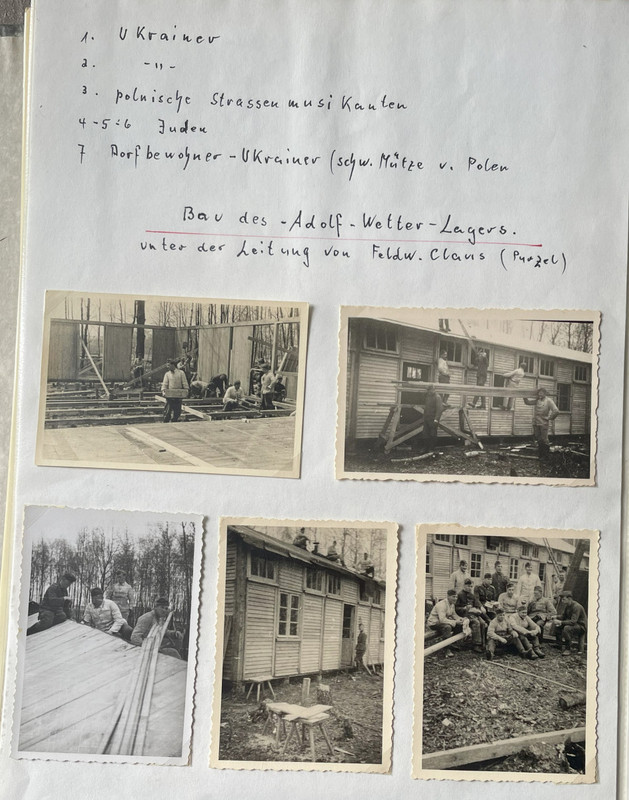 1. Ukrainer
2. -"-
3. polnische Strassenmusikanten
4-5:6 Juden
7 Dorfbewohner-Ukrainer (schw. Mütze v. Polen
Bau des -Adolf-Wetter-Lagers.
unter der Leitung von Feldw. Claus (Purzel)